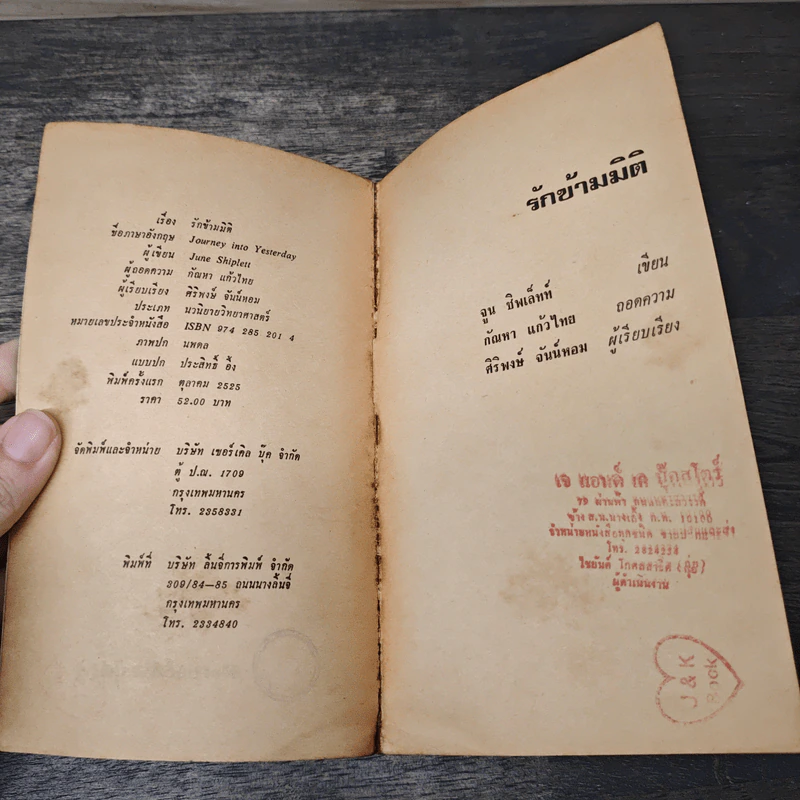 เรื่อง รักข้ามมิติ
ชื่อภาษาอังกฤษ Journey into Yesterday
ผู้เขียน June Shiplett
ผู้ถอดความ กัณหา แก้วไทย
ผู้เรียบเรียง ศิริพงษ์ จันน์หอม
ประเภท นวนิยายวิทยาศาสตร์
หมายเลขประจำหนังสือ ISBN 974 285 201 4
ภาพปก นพดล
แบบปก ประสิทธิ์ อึ้ง
พิมพ์ครั้งแรก ตุลาคม 2525
ราคา 52.00 บาท
จัดพิมพ์และจำหน่าย บริษัท เซอร์เคิล บุ๊ค จำกัด
ตู้ ป.ณ. 1709
กรุงเทพมหานคร
โทร. 2358331
พิมพ์ที่ บริษัท ลิ้นจี่การพิมพ์ จำกัด
309/84-85 ถนนนางลิ้นจี่
กรุงเทพมหานคร
โทร. 2334840
รักข้ามมิติ
จูน ชิพเล็ทท์ เขียน
กัณหา แก้วไทย ถอดความ
ศิริพงษ์ จันน์หอม ผู้เรียบเรียง
เจ แอนด์ เค บุ๊คสโตร์
ข้าง ส.น.นางเลิ้ง ก.ท. 10100
จำหน่ายหนังสือทุกชนิด
โทร.
ไชยันต์
ผู้ดำเนินงาน
J & K
Book